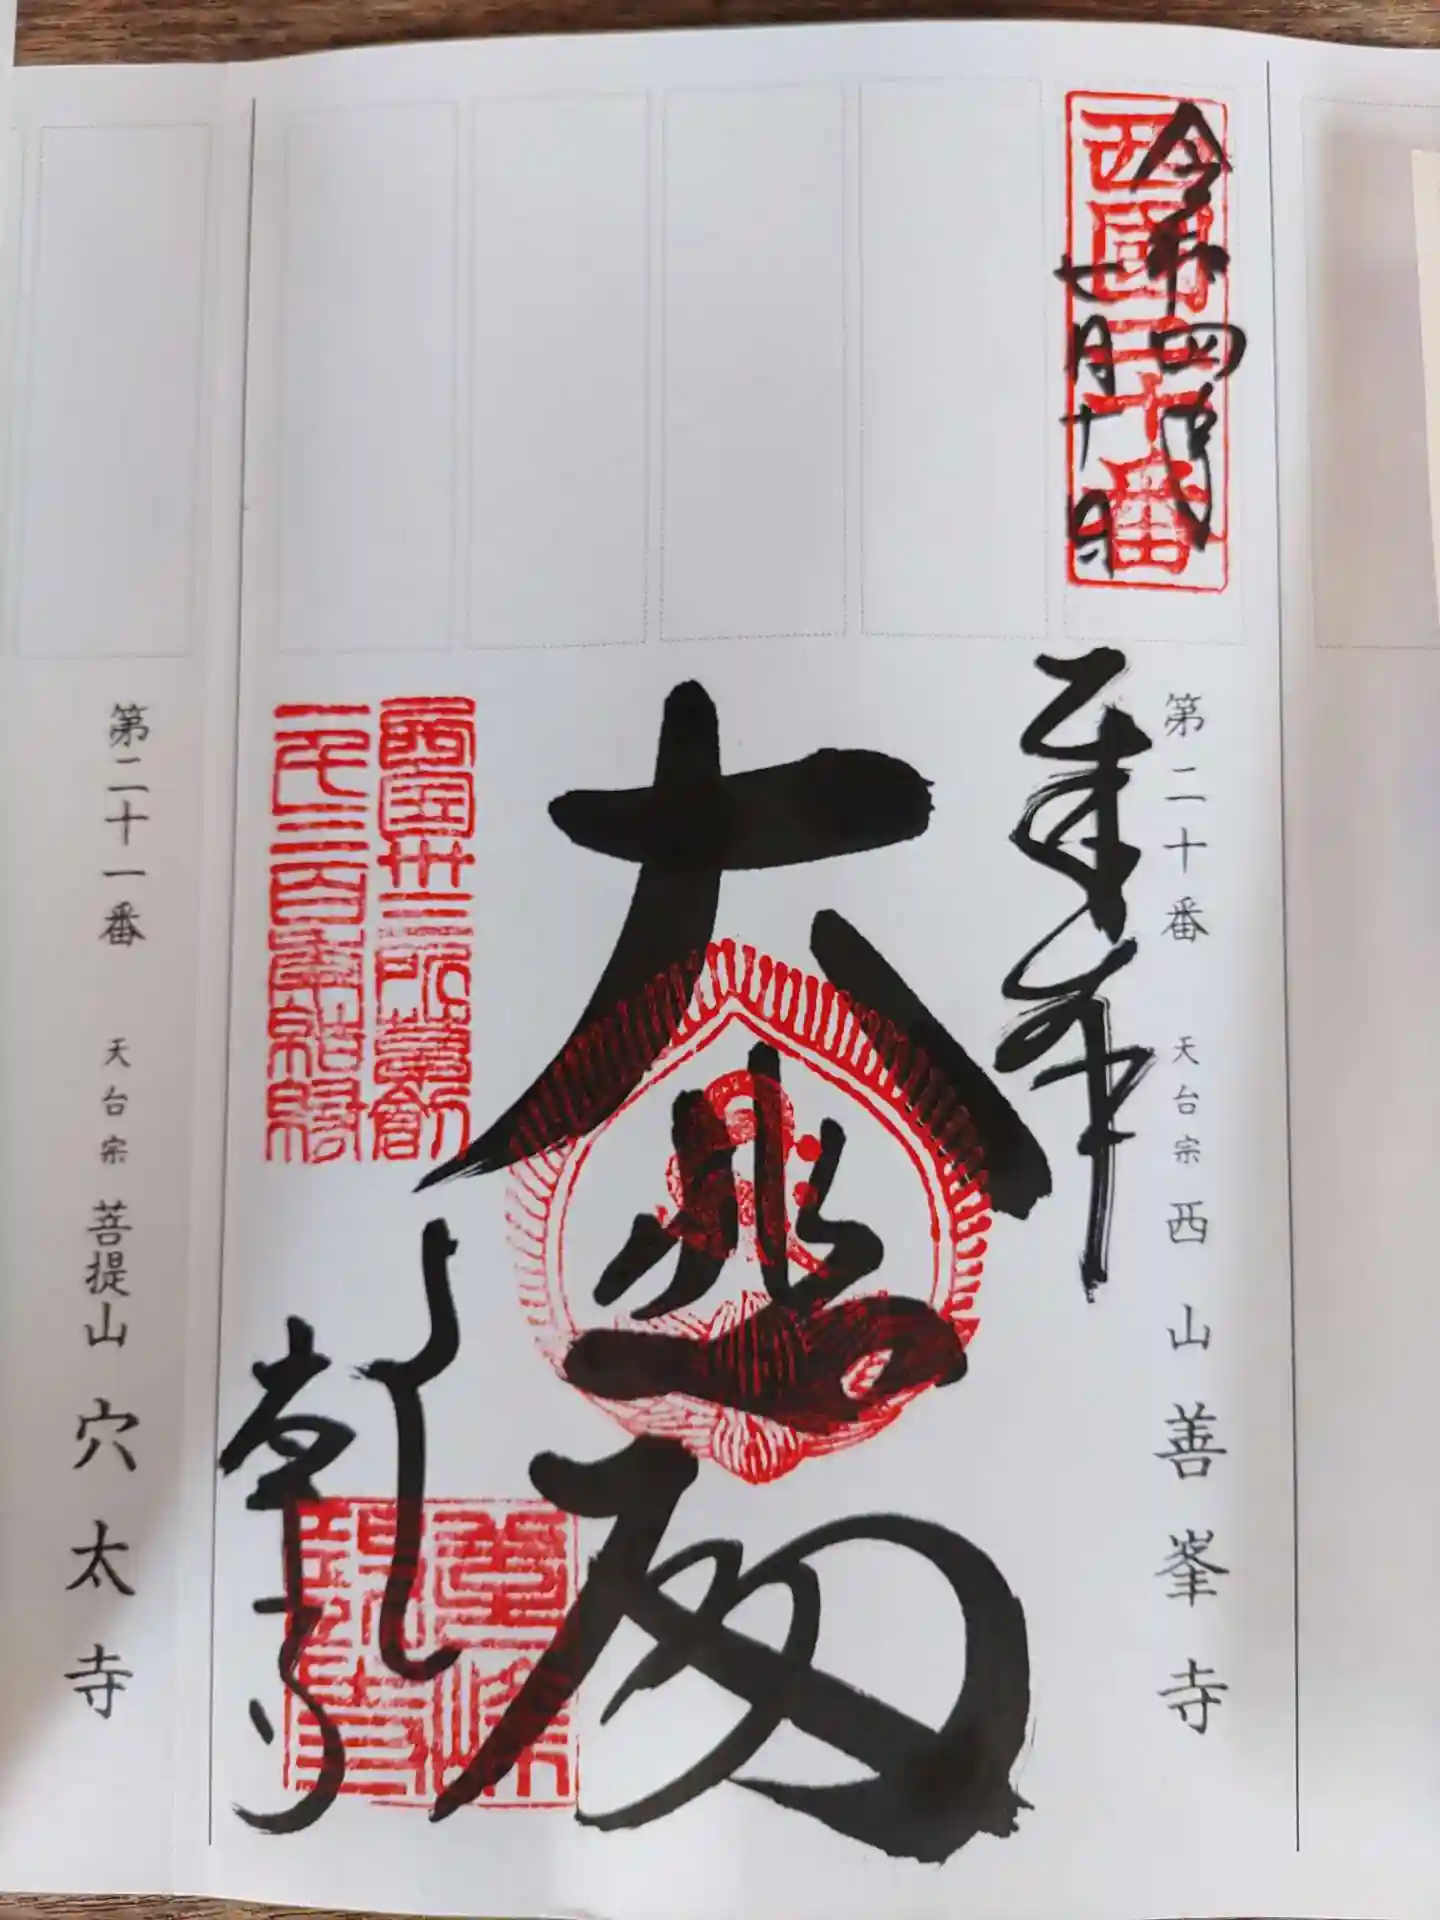 西國二十番
令和四年
七月十八日
第二十番 天台宗 西山 善峯寺
奉拝
大悲殿
西国卅三所草創
一千三百年記念
善峯寺
第二十一番 天台宗 菩提山 穴太寺